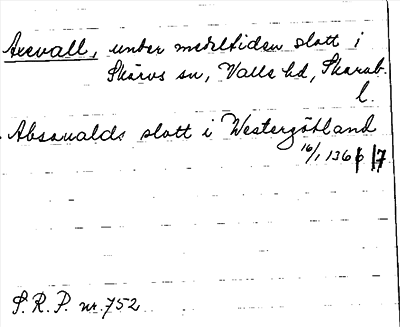 Axevall, under medeltiden slott i
Skärvs sn, Valle hd, Skarab.
l.
Absaualds slott i Westergötland
16/1 1366 | 7
S. R. P. nr. 752